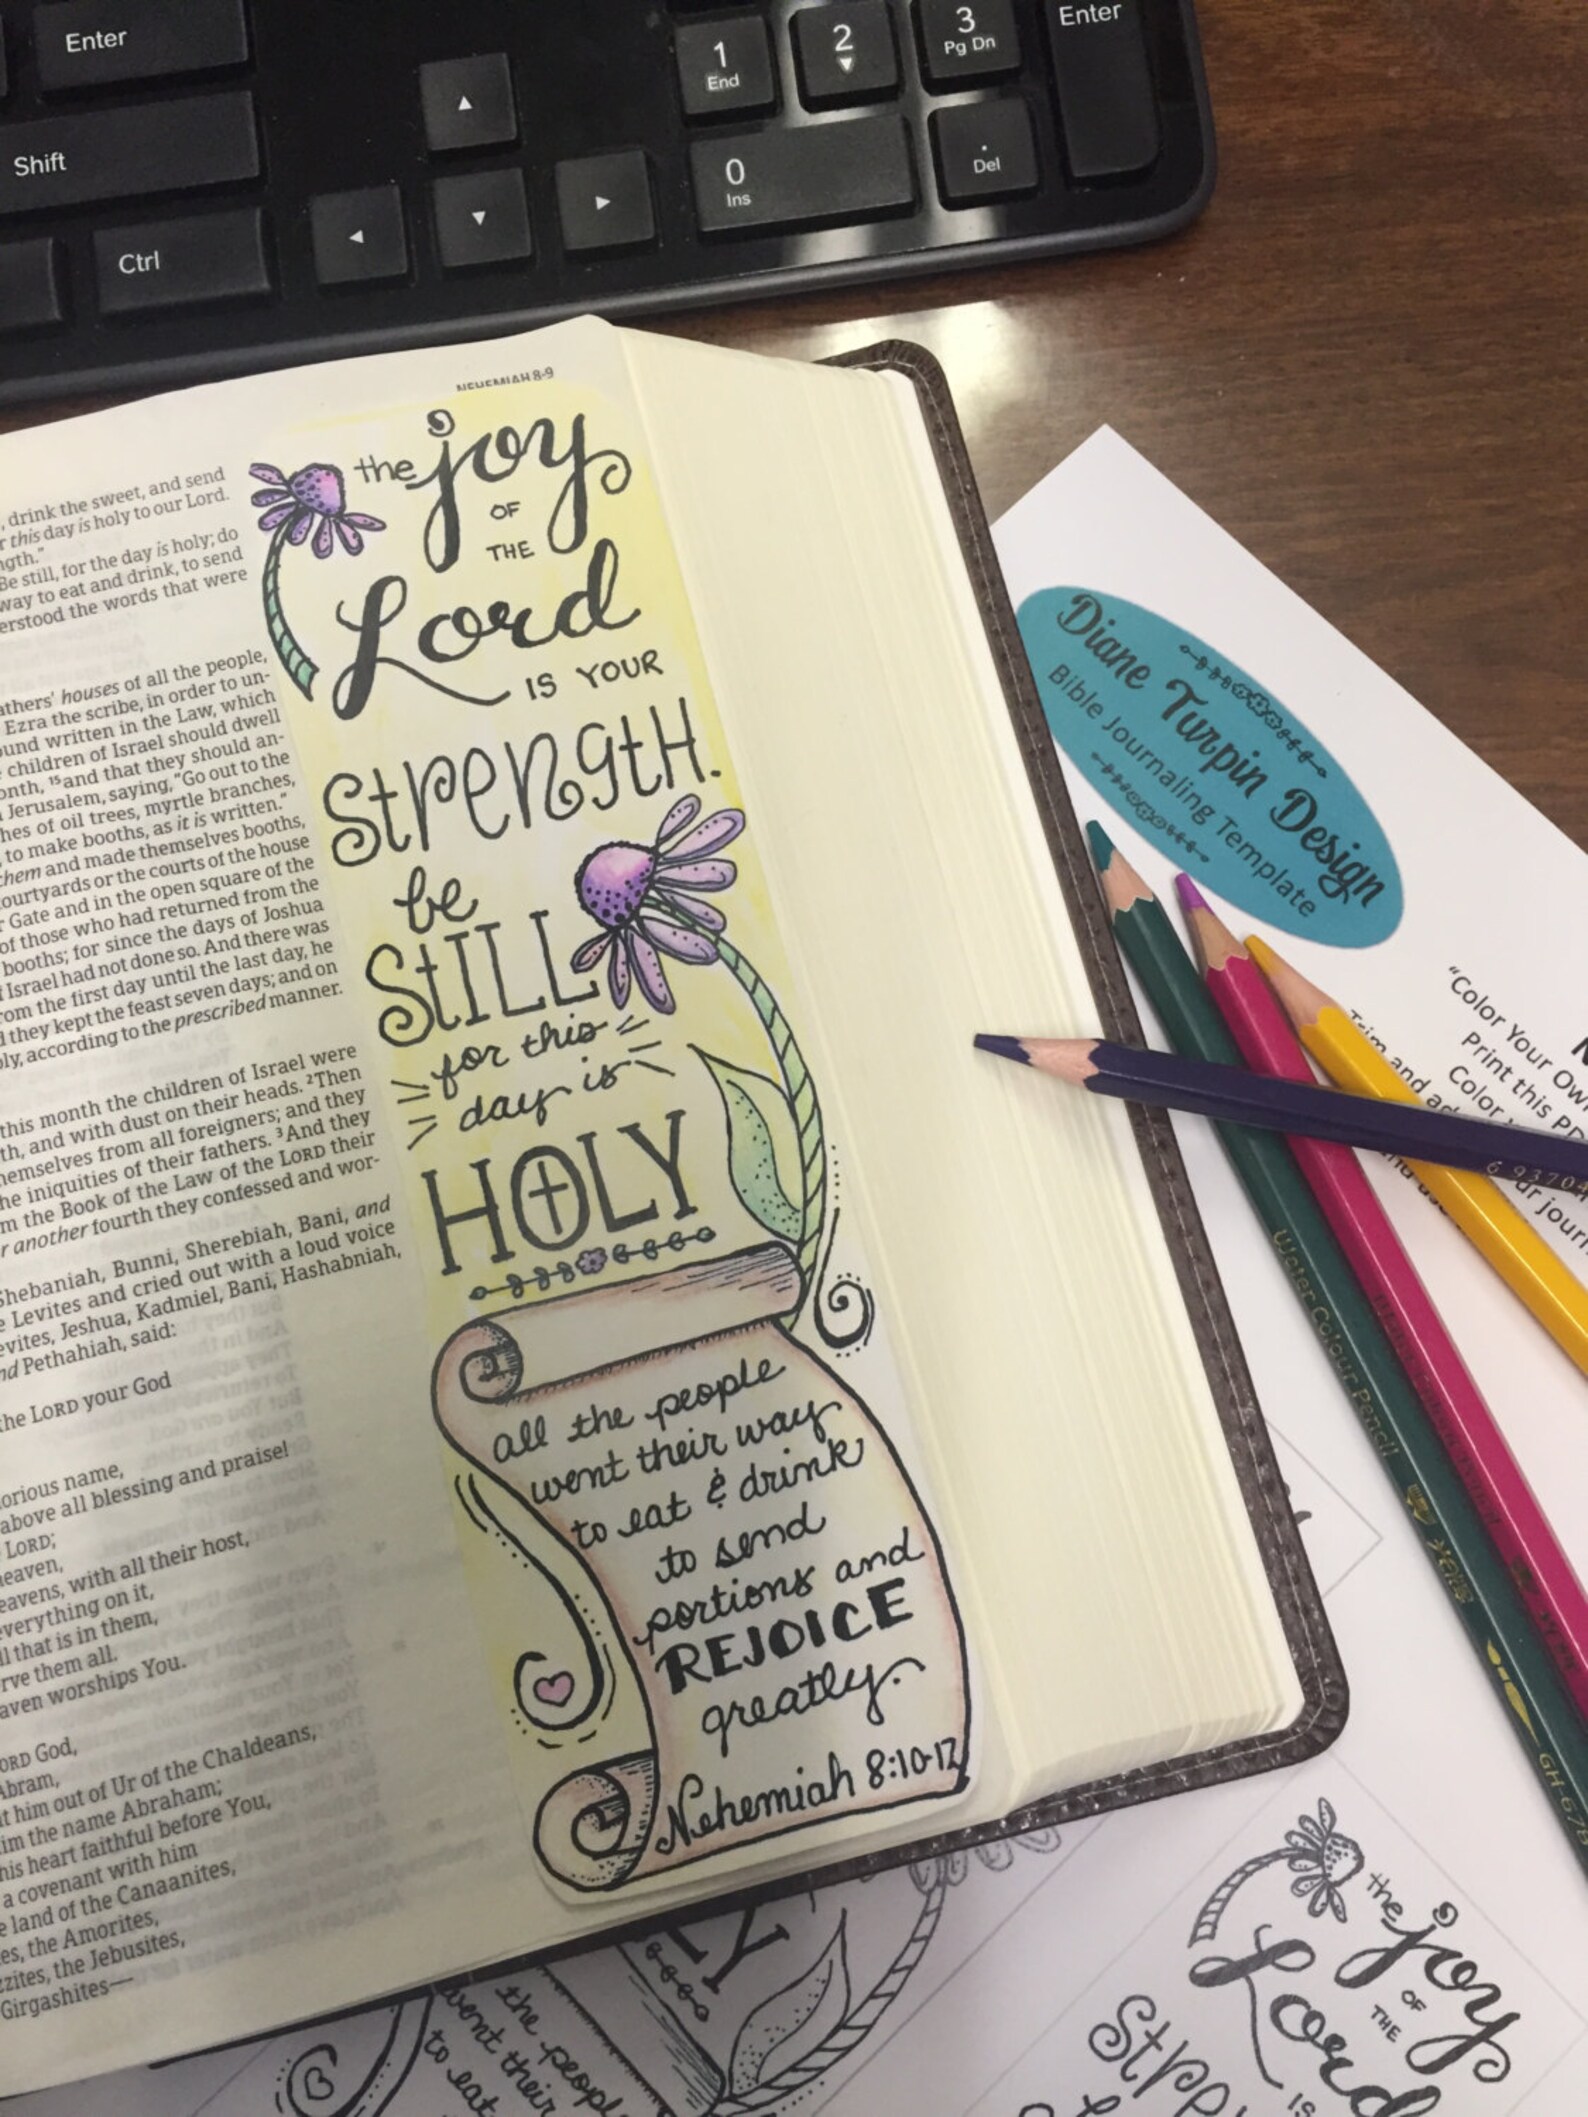 Enter
Shift
Ctrl
▲
◄
▼
►
1
End
2
▼
3
Pg Dn
Enter
0
Ins
.
Del
NEHEMIAH 8-9
, drink the sweet, and send
this day is holy to our Lord.
Be still, for the day is holy; do
way to eat and drink, to send
the words that were
houses of all the people,
Ezra the scribe, in order to un-
written in the Law, which
children of Israel should dwell
15 and that they should an-
Jerusalem, saying, "Go out to the
of oil trees, myrtle branches,
, to make booths, as it is written."
and made themselves booths,
or the courts of the house
Gate and in the open square of the
of those who had returned from the
booths; for since the days of Joshua
Israel had not done so. And there was
from the first day until the last day, he
they kept the feast seven days; and on
, according to the prescribed manner.
this month the children of Israel were
and with dust on their heads. 2 Then
from all foreigners; and they
the iniquities of their fathers. 3 And they
the Book of the Law of the LORD their
another fourth they confessed and wor-
Shebaniah, Bunni, Sherebiah, Bani, and
Levites and cried out with a loud voice
Jeshua, Kadmiel, Bani, Hashabniah,
Pethahiah, said:
the LORD your God
name,
above all blessing and praise!
LORD;
with all their host,
everything on it,
that is in them,
them all.
worships You.
God,
Abram,
him out of Ur of the Chaldeans,
the name Abraham;
his heart faithful before You,
a covenant with him
land of the Canaanites,
the Amorites,
the Jebusites,
Girgashites—
the joy
OF
THE
Lord
IS YOUR
Strength.
be
STILL
for this
day is
HOLY
all the people
went their way
to eat & drink
to send
portions and
REJOICE
greatly.
Nehemiah 8:10-12
Diane Turpin Design
Bible Journaling Template
"Color Your Own
Print this
Color
Trim and
6 93704
Water Colour Pencil
the people
went their
to eat
the joy
OF
THE
Lord
IS